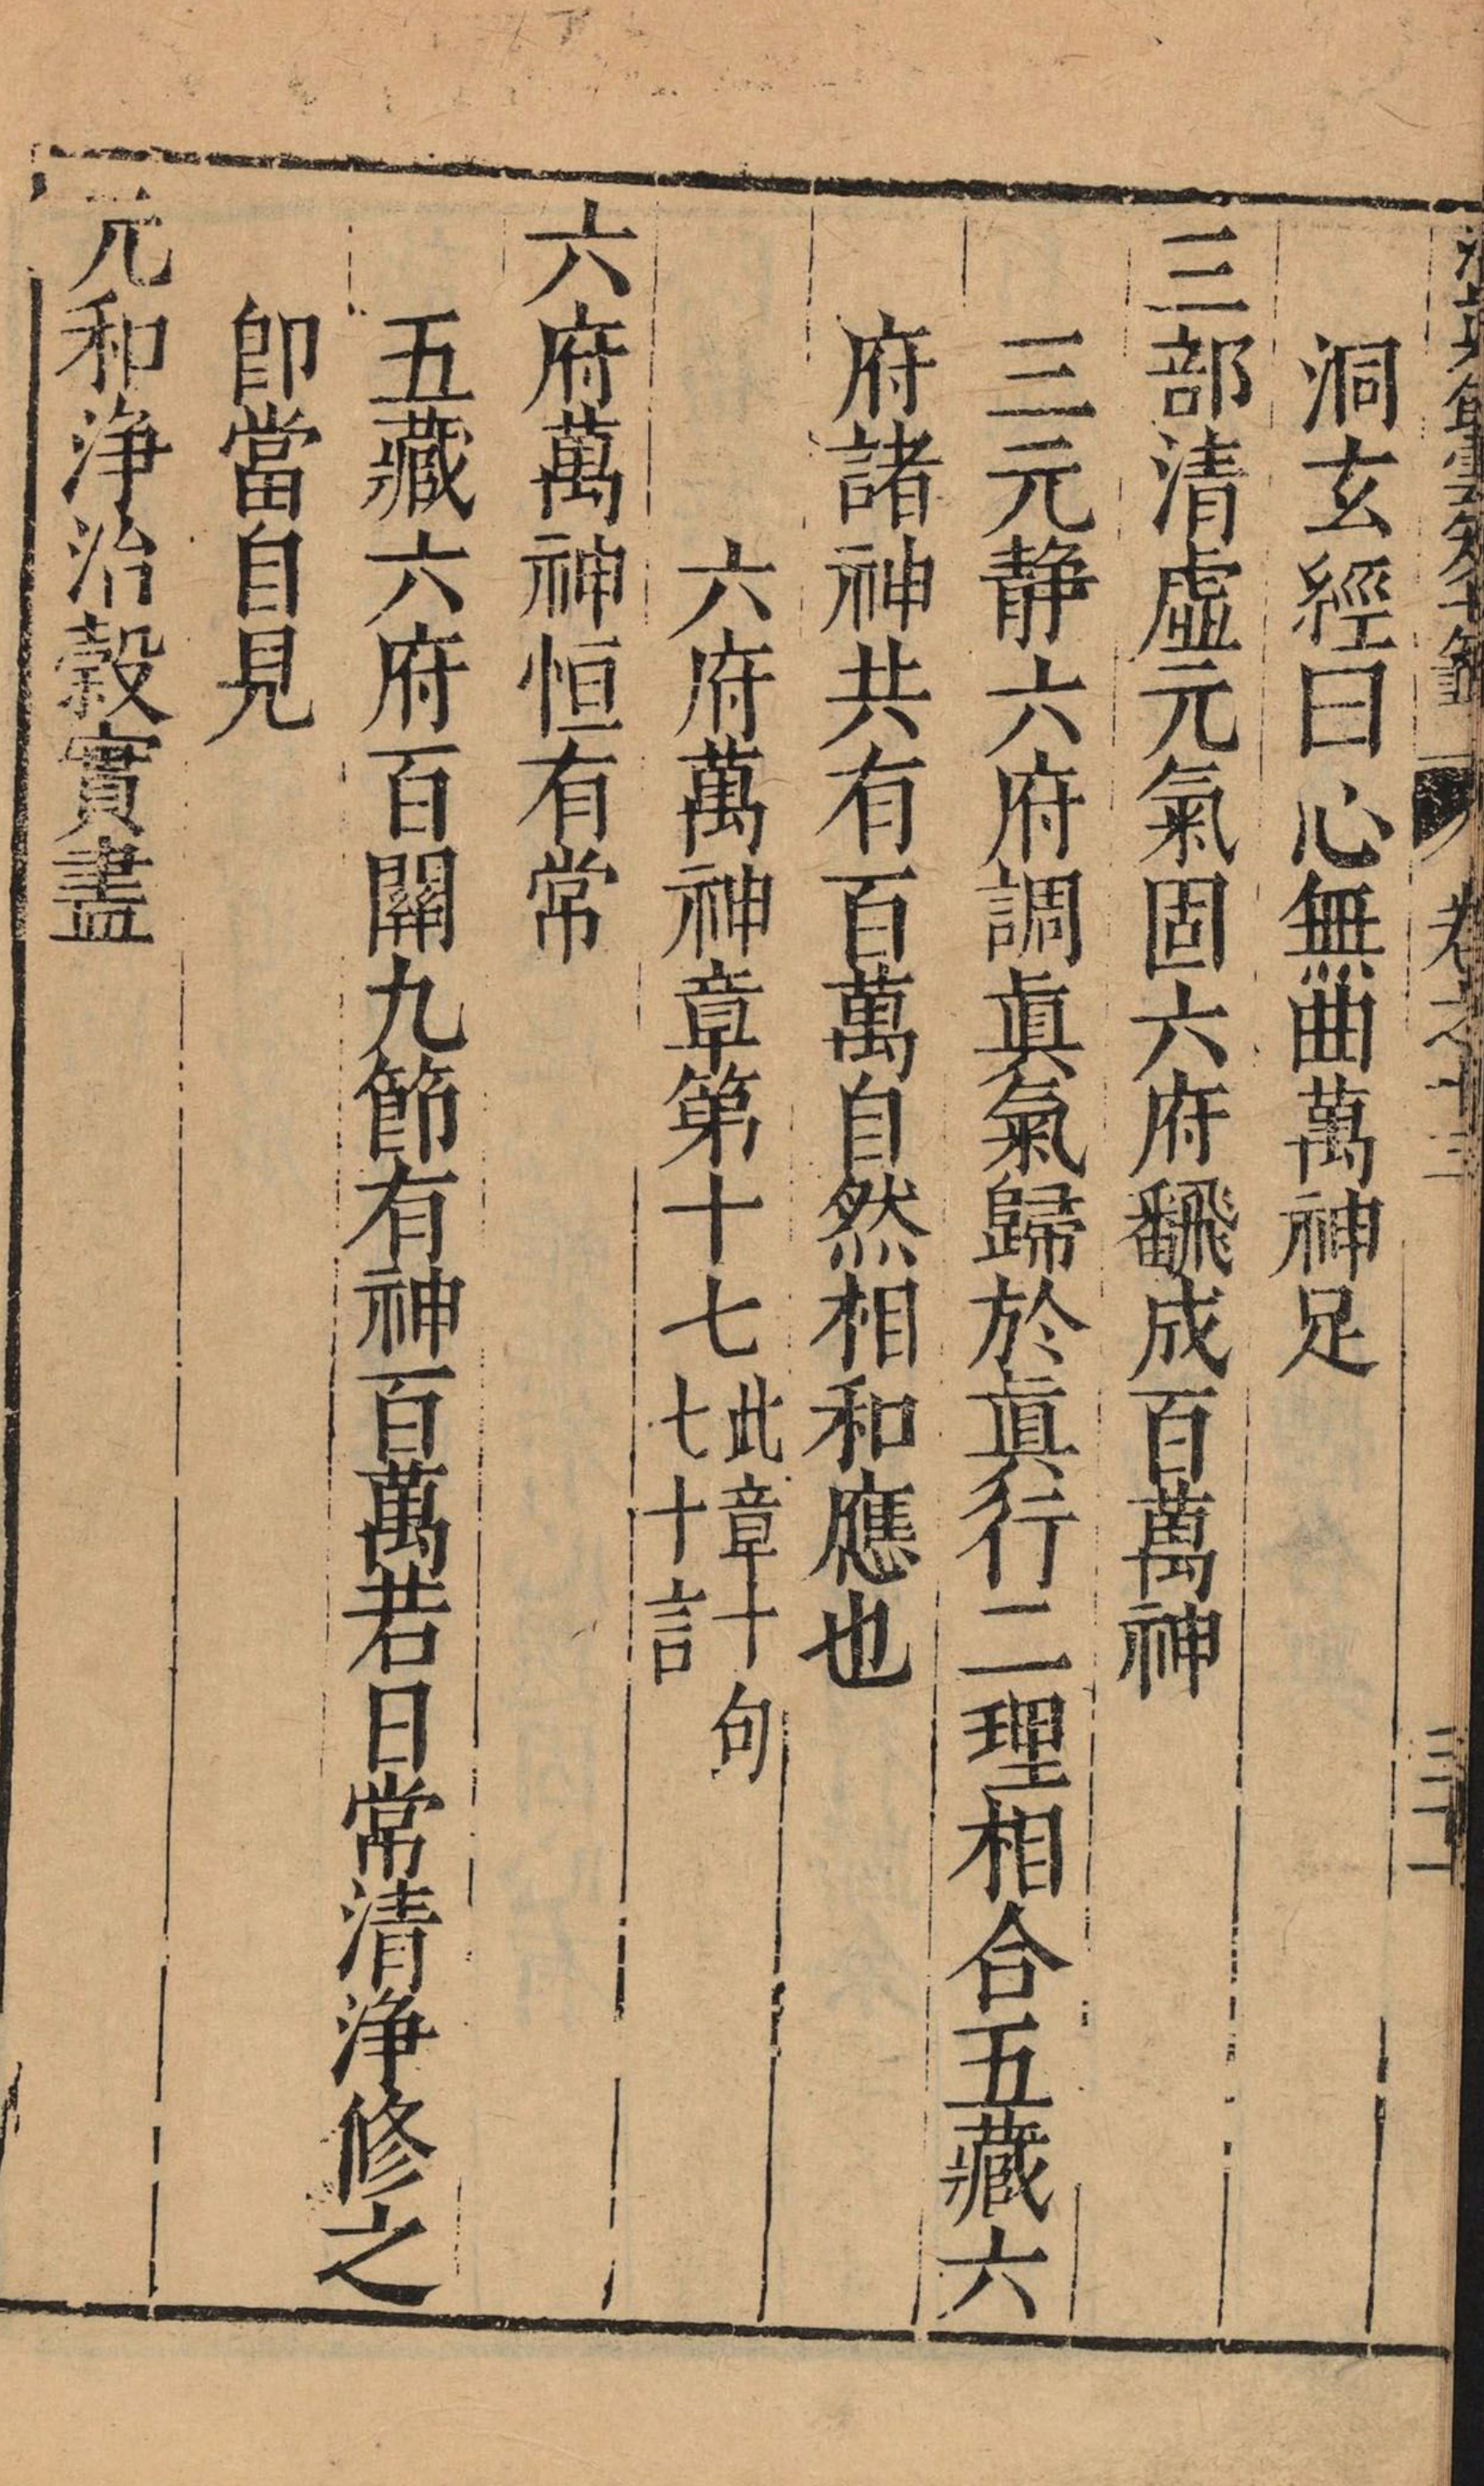 卷之十三
洞玄經曰心無曲萬神足
三部清虛元氣固六府飜成百萬神
三元静六府調眞氣歸於眞行二理相合五藏六
府諸神共有百萬自然相和應也
六府萬神章第十七此章十句
七十言
六府萬神恒有常
五藏六府百關九節有神百萬若日常清淨修之
卽當自見
元和淨治穀實盡